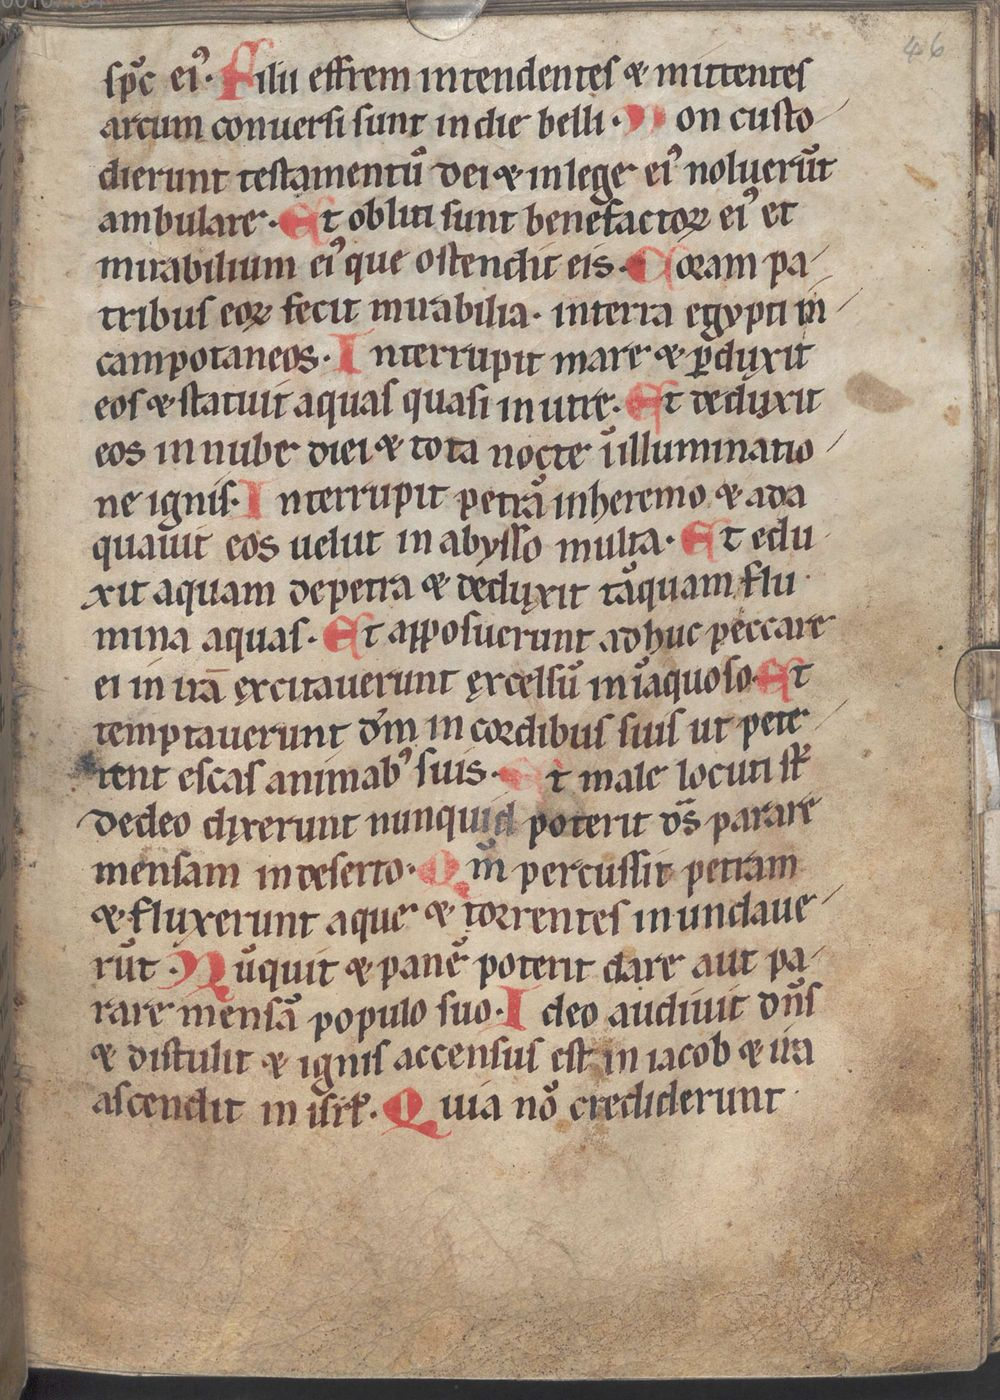 46
sp̄c ei᾿· Filii effrem intendentes & mittentes
arcum conuersi sunt in die belli · Non custo
dierunt testamentū dei & in lege ei᾿ noluerūt
ambulare · Et obliti sunt benefactoꝝ ei᾿ et
mirabilium ei᾿ que ostendit eis · Coram pa
tribus eoꝝ fecit mirabilia · in terra egypti in
campo taneos · Interrupit mare & ꝑduxit
eos & statuit aquas quasi in utre · Et deduxit
eos in nube diei & tota nocte in illuminatio
ne ignis · Interrupit petrā in heremo & ada
quauit eos uelut in abysso multa · Et edu
xit aquam de petra & deduxit tāquam flu
mina aquas · Et apposuerunt adhuc peccare
ei in irā excitauerunt excelsū in īaquoso · Et
temptauerunt dm̄ in cordibus suis ut pete
rent escas animab᾿ suis · Et male locuti st̄
de deo dixerunt nunquid poterit ds̄ parare
mensam in deserto · Qm̄ percussit petram
& fluxerunt aque & torrentes inundaue
rūt · Nūquit & panē poterit dare aut pa
rare mensā populo suo · Ideo audiuit dn̄s
& distulit & ignis accensus est in iacob & ira
ascendit in isrł · Quia nō crediderunt